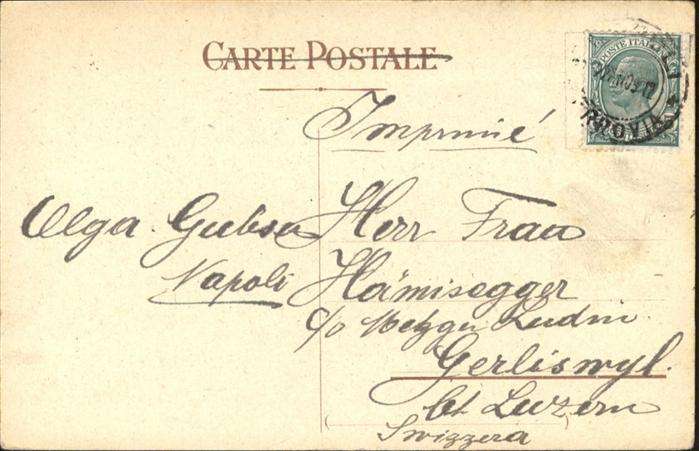 CARTE POSTALE
POSTE ITALIANE
Imprimé
Olga Gubser
Napoli
Herr Frau
Hämisegger
c/o Metzger Ludin
Gerliswyl.
bt Luzern
Svizzera